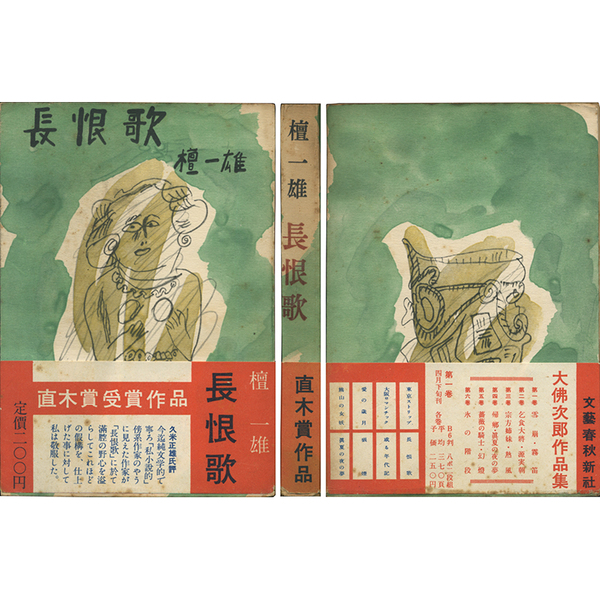 長恨歌
檀一雄
直木賞受賞作品
長恨歌
檀一雄
久米正雄氏評
今迄純文学的で
寧ろ「私小説的」
傍系作家のやう
に見えた作家が
「長恨歌」に於て
らしてこれほど
満腔の野心を溢
の仮構を、仕上
げた事に対して
私は敬服した。
定價二〇〇円
檀一雄
長恨歌
直木賞作品
文藝春秋新社
大佛次郎作品集
第一巻 雪崩・霧笛
第二巻 乞食大将・源実朝
第三巻 宗方姉妹・熱風
第四巻 帰郷・真夏の夜の夢
第五巻 薔薇の騎士・幻燈
第六巻 氷の階段
第一巻
四月下旬刊
B6判 八ポ二段組
平均三七〇頁
各巻 予価二五〇円
東京ストリップ
長恨歌
大阪ロマンチック
或る年代記
愛の歳月
佛山の女妖
真夏の夜の夢